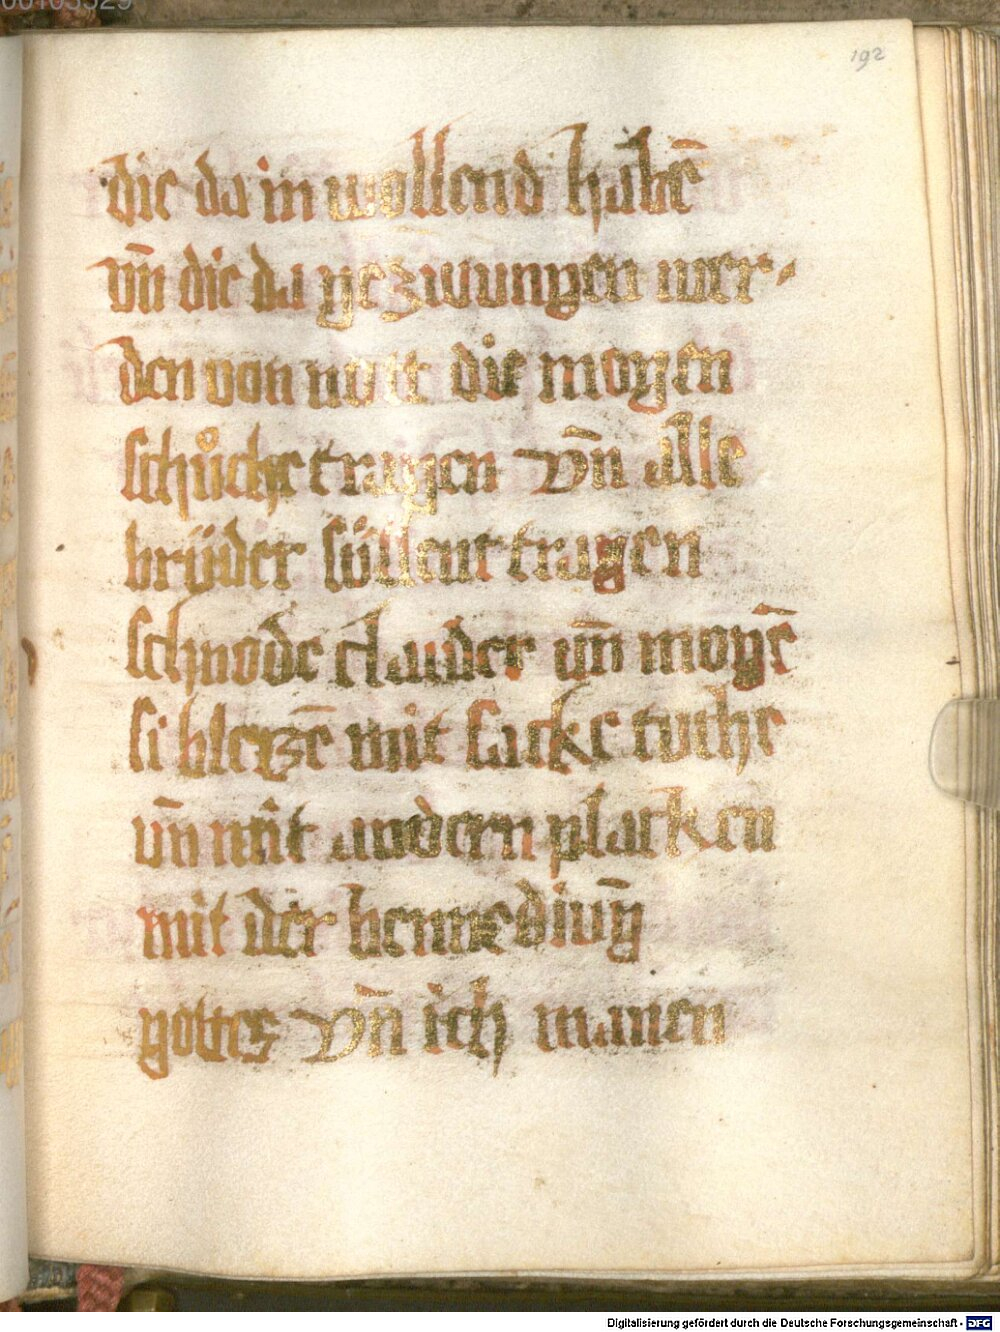 00103529
192
die da in wollend habē
vn̄ die da gezwungen wer-
den von nott die mogen
schůche tragen vn̄ alle
brüder süllent tragen
schnode claider vn̄ mogē
si blezē mit sacke tuche
vn̄ mit andern placken
mit der bennediūg
gottes vn̄ ich manen
Digitalisierung gefördert durch die Deutsche Forschungsgemeinschaft - DFG